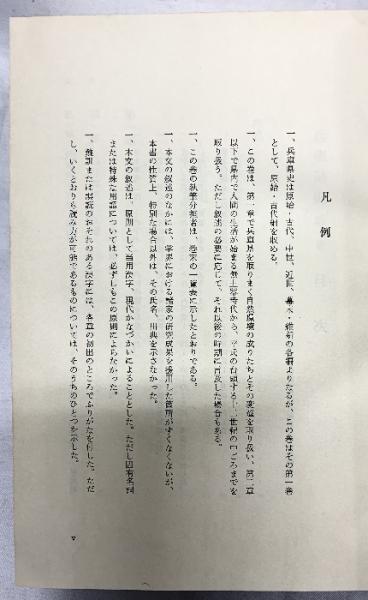 凡例
一、兵庫県史は原始・古代、中世、近世、幕末・維新の各編よりなるが、この巻はその第一巻
として、原始・古代編を収める。
一、この巻は、第一章で兵庫県を取りまく自然環境の成りたちとその変遷を取り扱い、第二章
以下で県内で人間の生活が始まる無土器時代から、平氏の台頭する十二世紀の中ごろまでを
取り扱う。ただし叙述の必要に応じて、それ以後の時期に言及した場合もある。
一、この巻の執筆分担者は、巻末の一覧表に示したとおりである。
一、本文の叙述のなかには、学界における諸家の研究成果を援用した箇所がすくなくないが、
本書の性質上、特別な場合以外は、その氏名、出典を示さなかった。
一、本文の叙述は、原則として当用漢字、現代かなづかいによることとした。ただし固有名詞
または特殊な用語については、必ずしもこの原則によらなかった。
一、難訓または誤読のおそれのある漢字には、各章の初出のところでふりがなを付した。ただ
し、いくとおりも読み方が可能であるものについては、そのうちのひとつを示した。
v